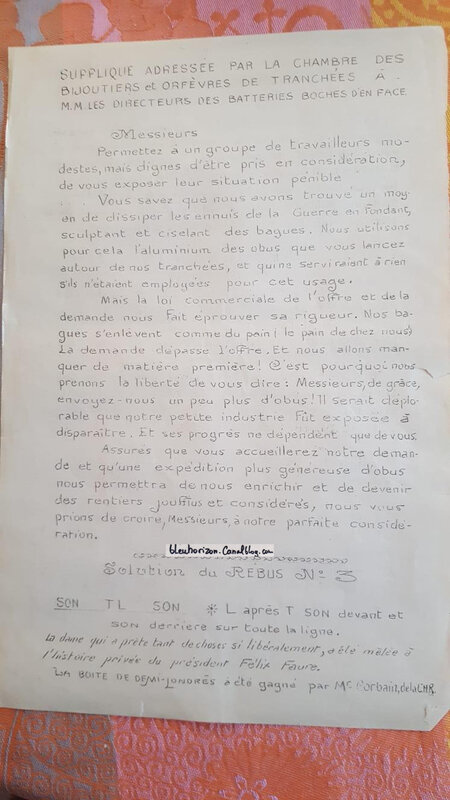 SUPPLIQUE ADRESSÉE PAR LA CHAMBRE DES
BIJOUTIERS et ORFÈVRES DE TRANCHÉES À
M.M. LES DIRECTEURS DES BATTERIES BOCHES D'EN FACE
Messieurs
Permettez à un groupe de travailleurs mo-
destes, mais dignes d'être pris en considération,
de vous exposer leur situation pénible
... Vous savez que nous avons trouvé un moy-
en de dissiper les ennuis de la Guerre en fondant,
sculptant et ciselant des bagues. Nous utilisons
pour cela l'aluminium des obus que vous lancez
autour de nos tranchées, et qui ne serviraient à rien
s'ils n'étaient employées pour cet usage.
Mais la loi commerciale de l'offre et de la
demande nous fait éprouver sa rigueur. Nos ba-
gues s'enlèvent comme du pain (le pain de chez nous)
La demande dépasse l'offre. Et nous allons man-
quer de matière première! C'est pourquoi nous
prenons la liberté de vous dire : Messieurs, de grâce,
envoyez-nous un peu plus d'obus! Il serait déplo-
rable que notre petite industrie fût exposée à
disparaître. Et ses progrès ne dépendent que de vous.
Assurés que vous accueillerez notre deman-
de et qu'une expédition plus généreuse d'obus
nous permettra de nous enrichir et de devenir
des rentiers joufflus et considérés, nous vous
prions de croire, Messieurs, à notre parfaite considé-
ration.
bleuhorizon.Canalblog.com
Solution du RÉBUS No 3
SON TL SON * L après T SON devant et
SON derrière sur toute la ligne.
La dame qui a prêté tant de choses si libéralement, a été mêlée à
l'histoire privée du président Félix Faure.
LA BOITE DE DEMI-LONDRÈS a été gagné par Mr Corbain, de la CHR.